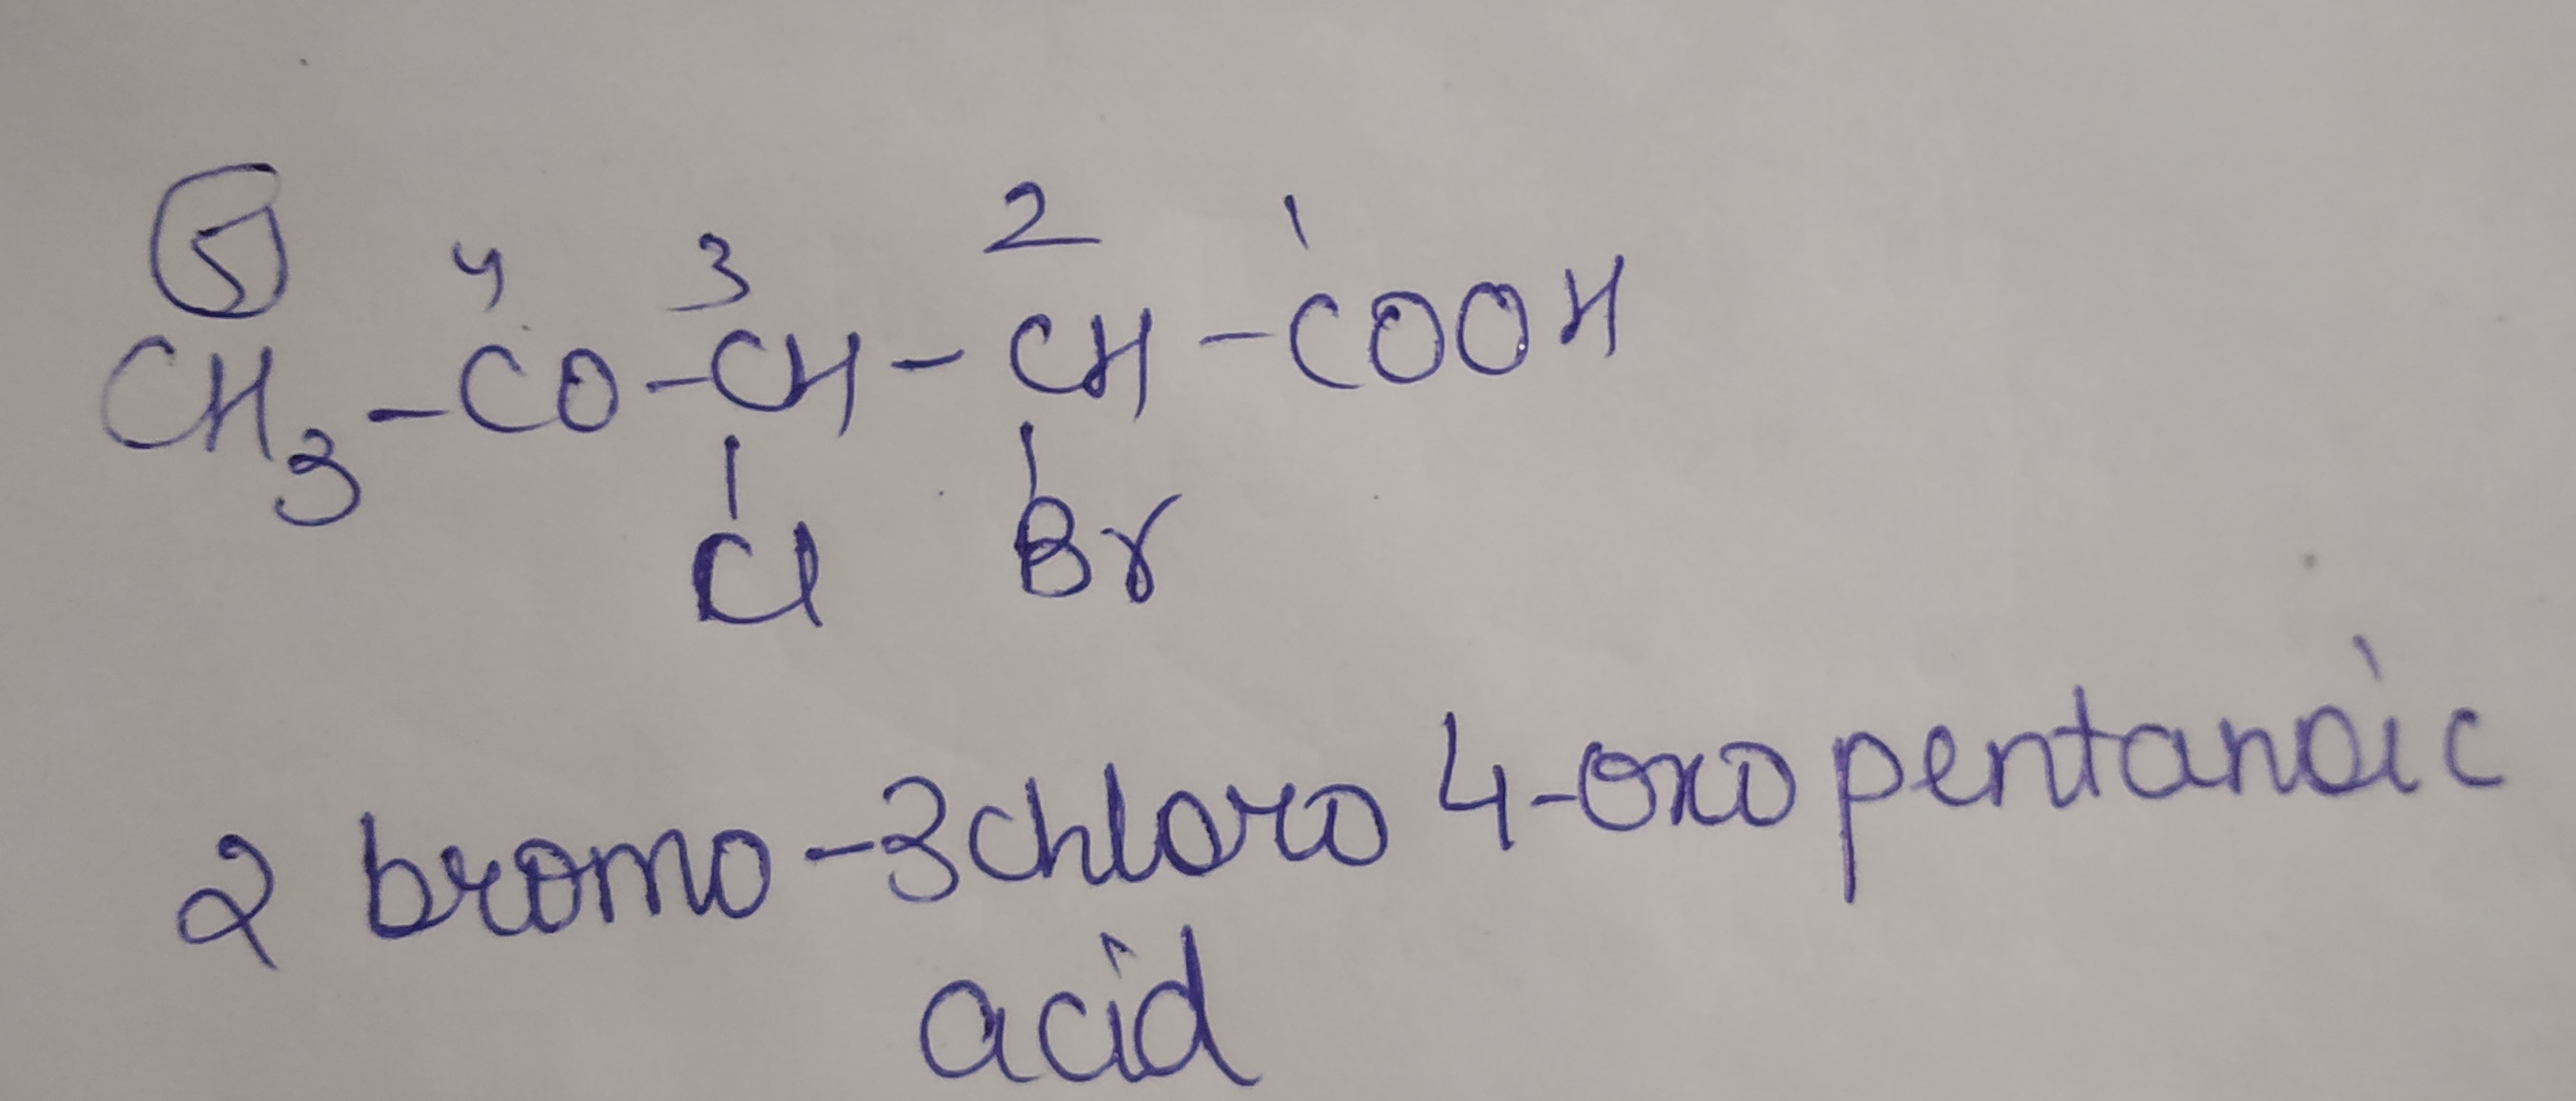 5 4 3 2 1
CH3-CO-CH-CH-COOH
Cl Br
2 bromo-3chloro 4-oxo pentanoic
acid